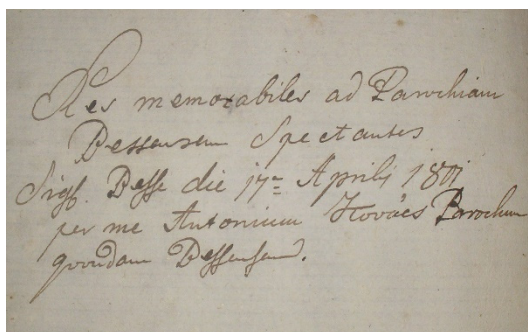 Res memorabiles ad Parochiam
Dessensem Spectantes
Sigf. Desse die 17a Aprili
per me Antonium Kovács Parochum
quondam Dessensem.